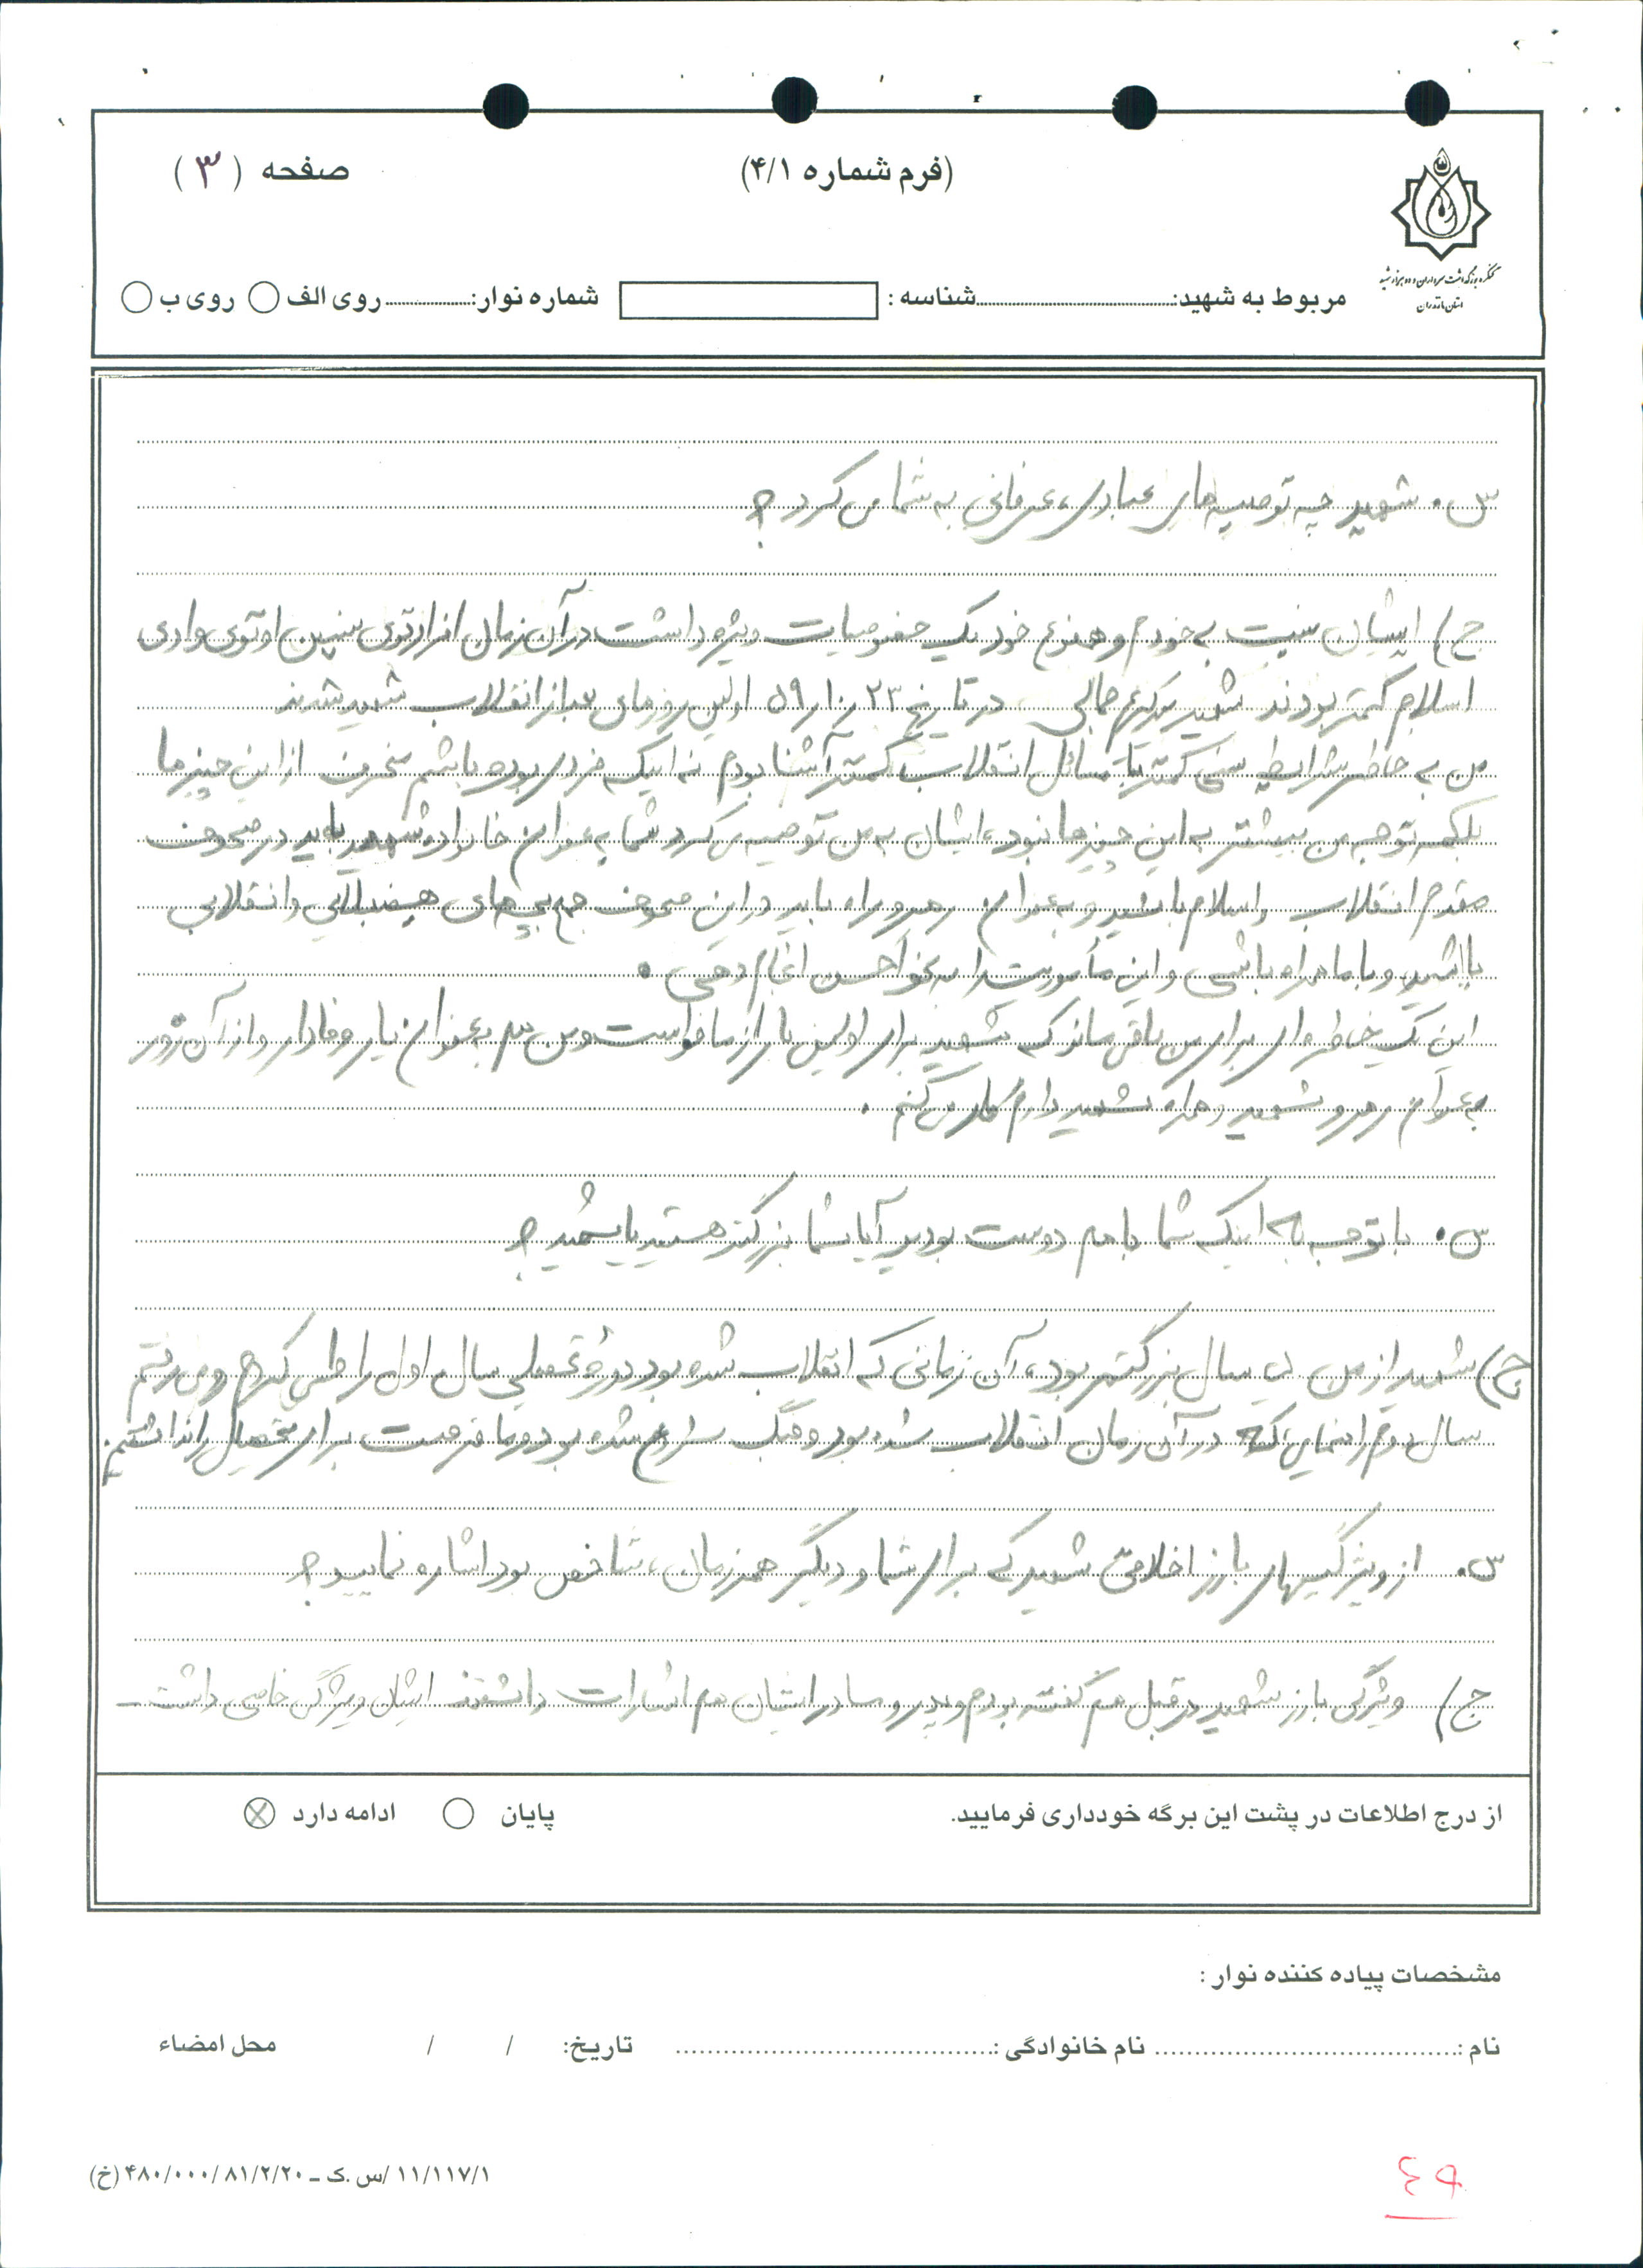 (فرم شماره ۴/۱)
صفحه (۳)
کنگره بزرگداشت سرداران و ده هزار شهید
استان مازندران
مربوط به شهید: شناسه : شماره نوار: روی الف روی ب
س. شهید چه توصیه های عبادی، عرفانی به شما می کرد؟
ج/ ایشان نسبت به خودم و همنوع خود یک خصوصیات ویژه داشت در آن زمان افراد توی سنین او توی وادی
اسلام کمتر بودند شهید جمالی در تاریخ ۲۳ ر۱۰ر ۵۹ اولین روزهای بعد از انقلاب شهید شدند
من به خاطر شرایط سنی کمتر با مسائل انقلاب کمتر آشنا بودم نه اینکه فردی بوده باشم منحرف از این چیزها
بلکه توجه من بیشتر به این چیزها نبود، ایشان به من توصیه می کرد شما به عنوان خانواده شهید باید در صحوف
مقدم انقلاب و اسلام باشید و به عنوان رهرو راه باید در این صحوف جمع بچه های حزب اللهی و انقلابی
باشید و با ما همراه باشی و این مأموریت را به نحو احسن انجام دهی .
این یک خاطره ای برای من باقی ماند که شهید برای اولین بار از ما خواست و من هم به عنوان یار وفادار و از آن روز
به عنوان رهرو شهید و راه شهید دارم کار می کنم .
س. با توجه به اینکه شما با هم دوست بودید آیا شما بزرگتر هستید یا شهید؟
ج) شهید از من یه سال بزرگتر بود، آن زمانی که انقلاب شده بود دوره تحصیلی سال اول را طی کردم و می رفتم
سال دوم راهنمایی که در آن زمان انقلاب شده بود و جنگ شروع شده بود و ما فرصت برای تحصیل را نداشتیم.
س. از ویژگیهای بارز اخلاقی شهید که برای شما و دیگر همرزمان، شاخص بود اشاره نمایید؟
ج/ ویژگی بارز شهید در قبل هم گفته بودم و پدر و مادر ایشان هم اشارات داشتند ایشان ویژگی خاصی داشت
از درج اطلاعات در پشت این برگه خودداری فرمایید. پایان ادامه دارد
مشخصات پیاده کننده نوار :
نام : نام خانوادگی : تاریخ: / / محل امضاء
۱۱/۱۱۷/۱ /س.ک – ۴۸۰/۰۰۰/۸۱/۲/۲۰ (خ)
۴۹